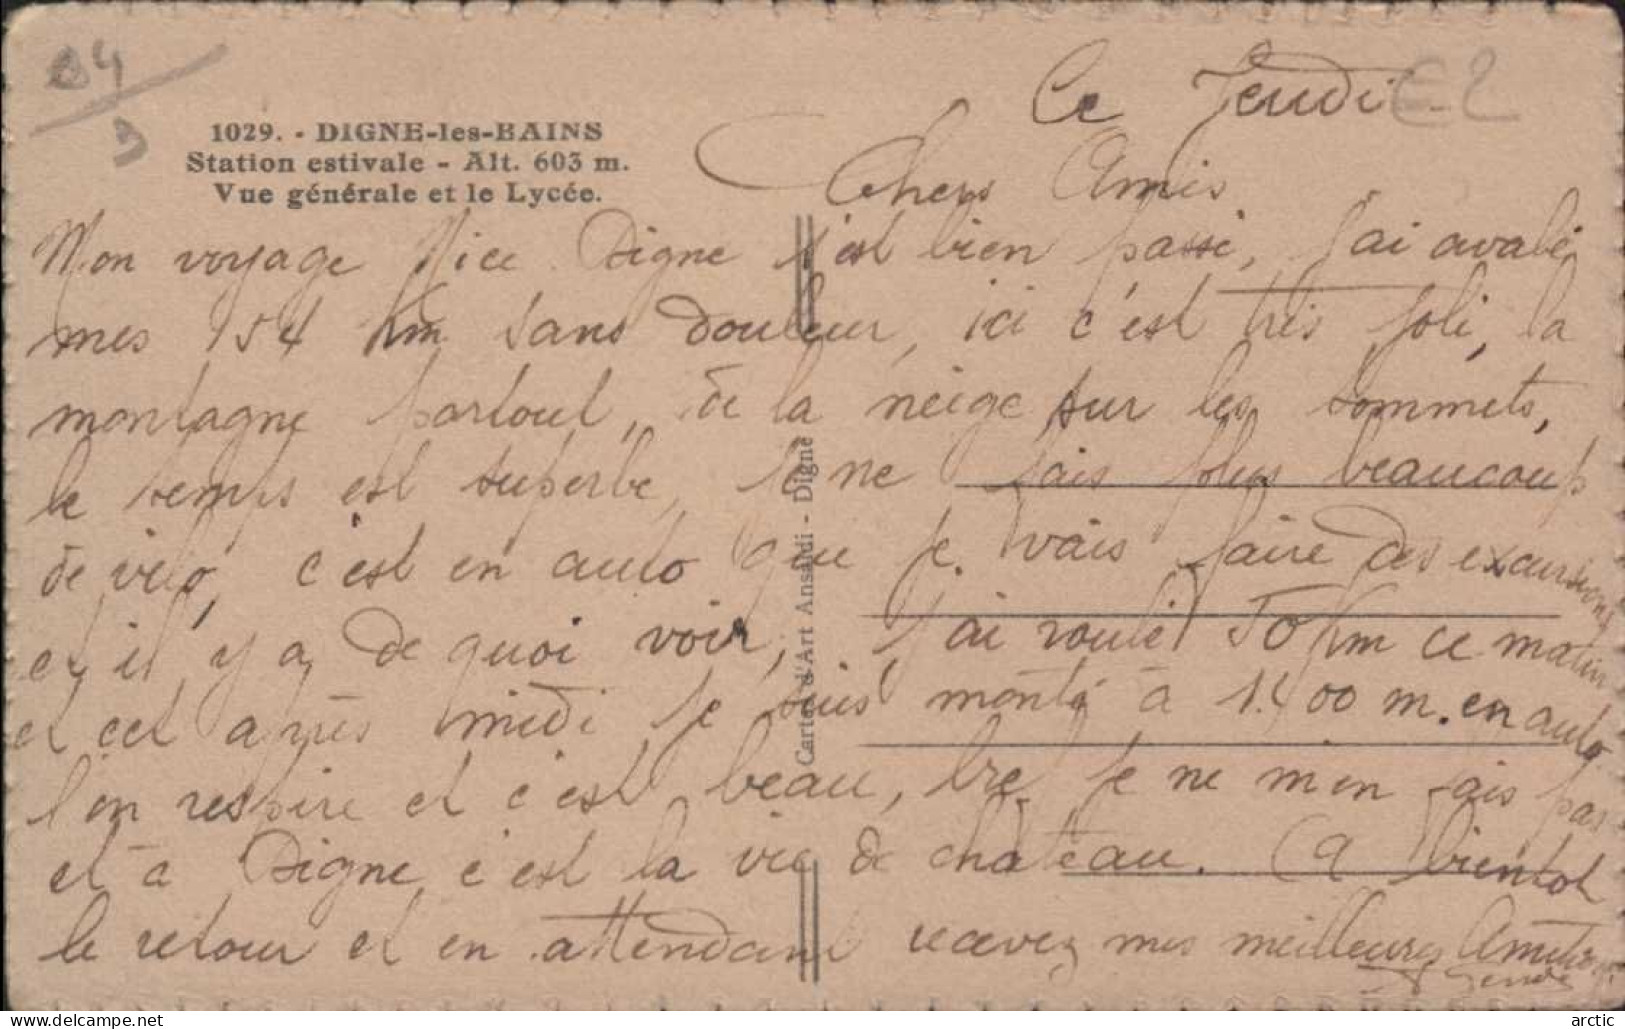 04
3
€2
Ce Jeudi
1029. - DIGNE-les-BAINS
Station estivale - Alt. 603 m.
Vue générale et le Lycée.
Chers Amis
Mon voyage Nice Digne s'est bien passé, j'ai avalé
mes 154 km sans douleur, ici c'est très joli, la
montagne partout, de la neige sur les sommets,
le temps est superbe, je ne fais plus beaucoup
de vélo, c'est en auto que je vais faire des excursions
et il y a de quoi voir, j'ai roulé 50 km ce matin
et cet après midi je suis monté à 1.400 m. en auto
l'on respire et c'est beau, bre je ne m'en fais pas
et à Digne c'est la vie de château. A bientot
le retour et en attendant recevez mes meilleures Amitiés
Cartes d'Art Ansaldi - Digne
arctic